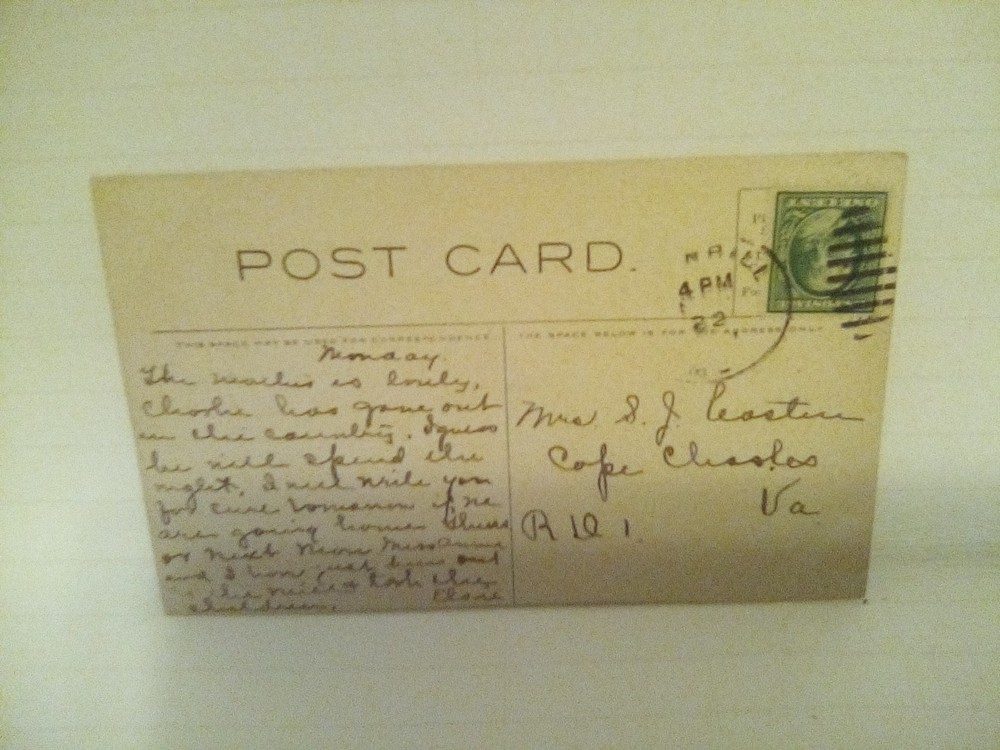 POST CARD.
4 PM
22
THIS SPACE MAY BE USED FOR CORRESPONDENCE
THE SPACE BELOW IS FOR THE ADDRESS ONLY
Monday.
The is lovely,
Charlie has gone out
in the country. I guess
he will spend the
night, I will write you
for sure tomorrow if we
are going home Thurs
or next Mon Miss Annie
and I have just been out
the &  the
children.
Mrs S. J.
Cape Charles
Va
R D 1.